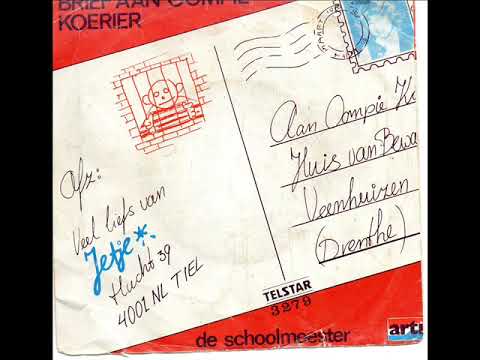 BRIEF AAN COMPIE
KOERIER
Aan Compie K
Huis van Bewa
Veenhuizen
(Drenthe)
Afz:
Veel liefs van
Jetje
Hucht 39
4001 NL TIEL
TELSTAR
3279
de schoolmeester